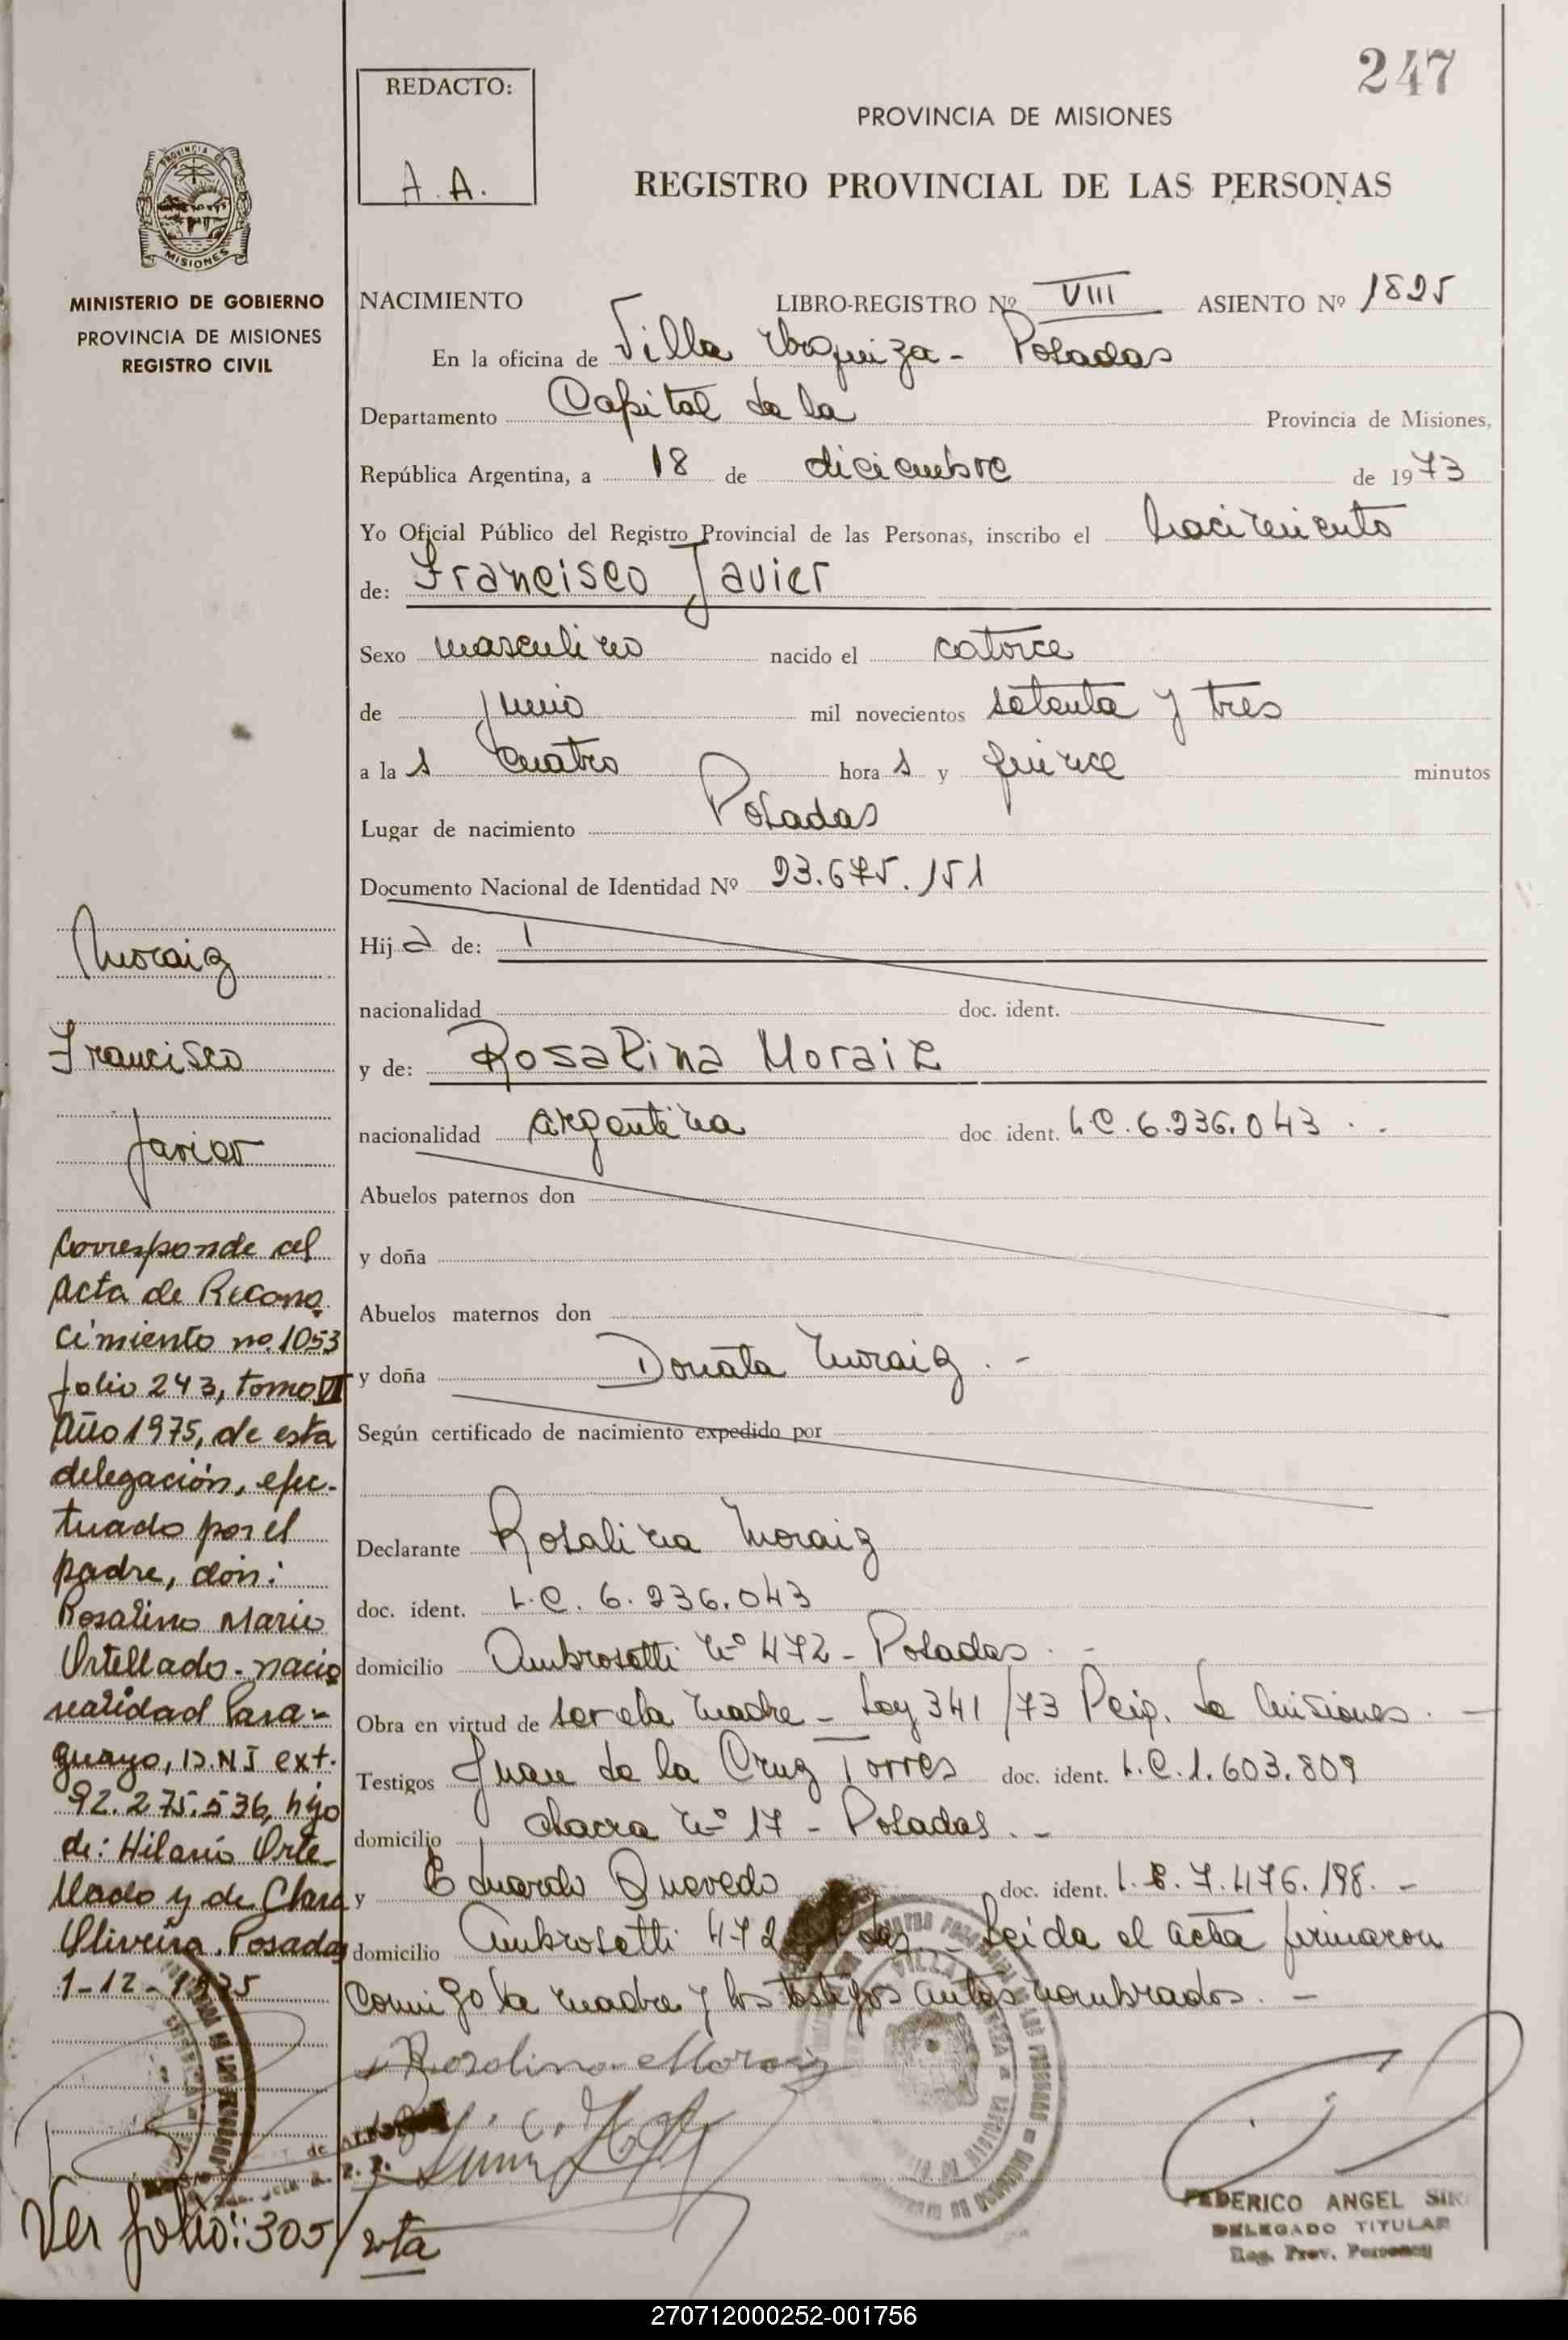 247
REDACTO:
A.A.
PROVINCIA DE MISIONES
REGISTRO PROVINCIAL DE LAS PERSONAS
PROVINCIA DE
MISIONES
MINISTERIO DE GOBIERNO
PROVINCIA DE MISIONES
REGISTRO CIVIL
NACIMIENTO LIBRO-REGISTRO Nº VIII ASIENTO Nº 1825
En la oficina de Villa Urquiza - Posadas
Departamento Capital de la Provincia de Misiones,
República Argentina, a 18 de diciembre de 1973
Yo Oficial Público del Registro Provincial de las Personas, inscribo el nacimiento
de: Francisco Javier
Sexo masculino nacido el catorce
de junio mil novecientos setenta y tres
a la s cuatro hora s y quince minutos
Lugar de nacimiento Posadas
Documento Nacional de Identidad Nº 23.675.151
Hij de:
nacionalidad doc. ident.
y de: Rosalina Moraiz
nacionalidad argentina doc. ident. L.C. 6.236.043 . -
Abuelos paternos don
y doña
Abuelos maternos don
y doña Donata Moraiz . -
Según certificado de nacimiento expedido por
Declarante Rosalina Moraiz
doc. ident. L.C. 6.236.043
domicilio Ambrosetti Nº 472 - Posadas . -
Obra en virtud de ser la madre - Ley 341/73 Pcia. de Misiones. -
Testigos Juan de la Cruz Torres doc. ident. L.C. 1.603.809
domicilio chacra Nº 17 - Posadas . -
y Eduardo Quevedo doc. ident. L.E. 7.476.198. -
domicilio Ambrosetti 472 - Leída el acta firmaron
conmigo la madre y los testigos antes nombrados. -
Rosalina Moraiz
FEDERICO ANGEL
DELEGADO TITULAR
Reg. Prov. Personas
Moraiz
Francisco
Javier
Corresponde al
Acta de Recono
cimiento nº. 1053
folio 243, tomo VI
Año 1975, de esta
delegación, efec-
tuado por el
padre, don:
Rosalino Mario
Ortellado - nacio
nalidad Para-
guayo, D.N.I ext.
92.275.536, hijo
de: Hilario Orte-
llado y de Clara
Oliveira. Posadas
1-12-1975
Ver folio: 305/ vta
270712000252-001756